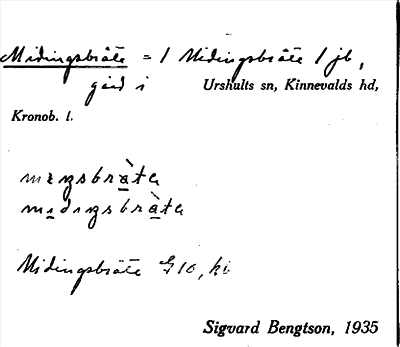 Midingsbråte = / Midingsbråte / jb,
gård i Urshults sn, Kinnevalds hd,
Kronob. l.
mɪŋsbràta
midɪŋsbràta
Midingsbråte G10, ki
Sigvard Bengtson, 1935